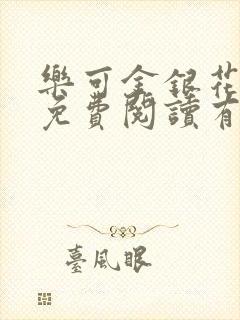 樂可金銀花
免費閱讀有
臺風眼